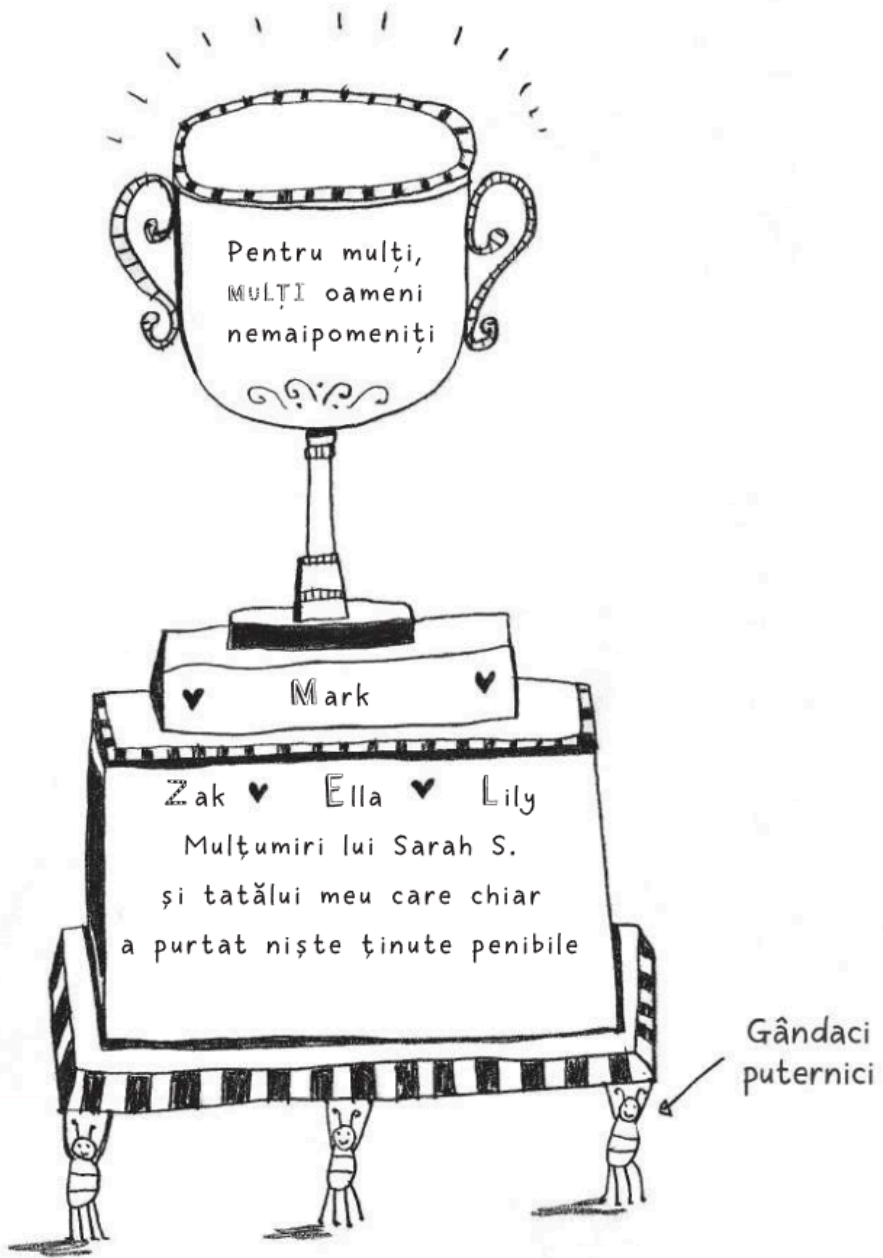 Pentru mulți,
MULȚI oameni
nemaipomeniți
Mark
Zak Ella Lily
Mulțumiri lui Sarah S.
și tatălui meu care chiar
a purtat niște ținute penibile
Gândaci
puternici